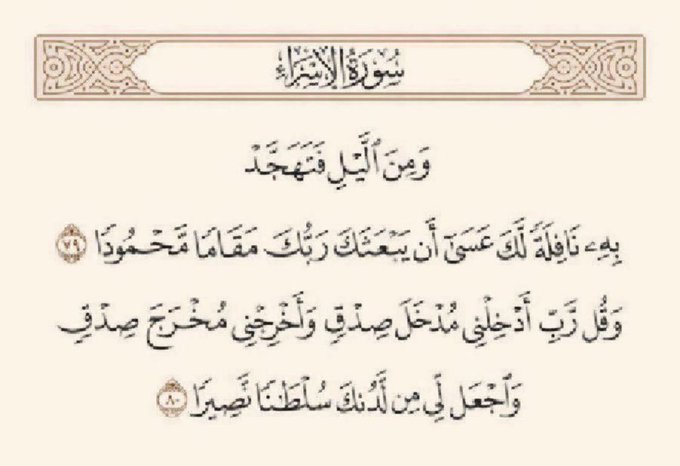 سُورَةُ الإِسْرَاءِ
وَمِنَ ٱلَّيْلِ فَتَهَجَّدْ
بِهِۦ نَافِلَةً لَّكَ عَسَىٰٓ أَن يَبْعَثَكَ رَبُّكَ مَقَامًا مَّحْمُودًا ٧٩
وَقُل رَّبِّ أَدْخِلْنِي مُدْخَلَ صِدْقٍ وَأَخْرِجْنِي مُخْرَجَ صِدْقٍ
وَٱجْعَل لِّي مِن لَّدُنكَ سُلْطَٰنًا نَّصِيرًا ٨٠